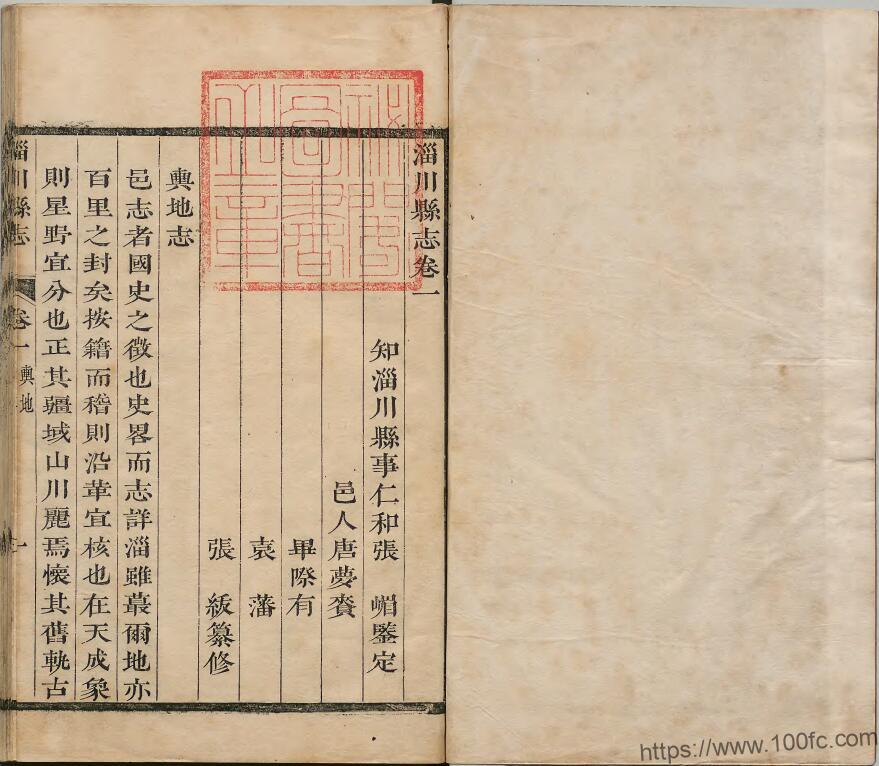 淄川縣志卷一
知淄川縣事仁和張嵋鑒定
邑人唐夢賚
畢際有
袁藩
張紱纂修
輿地志
邑志者國史之徵也史畧而志詳淄雖蕞爾地亦
百里之封矣按籍而稽則沿革宜核也在天成象
則星野宜分也正其疆域山川麗焉懷其舊軌古
淄川縣志 卷一 輿地 一
https://www.100fc.com